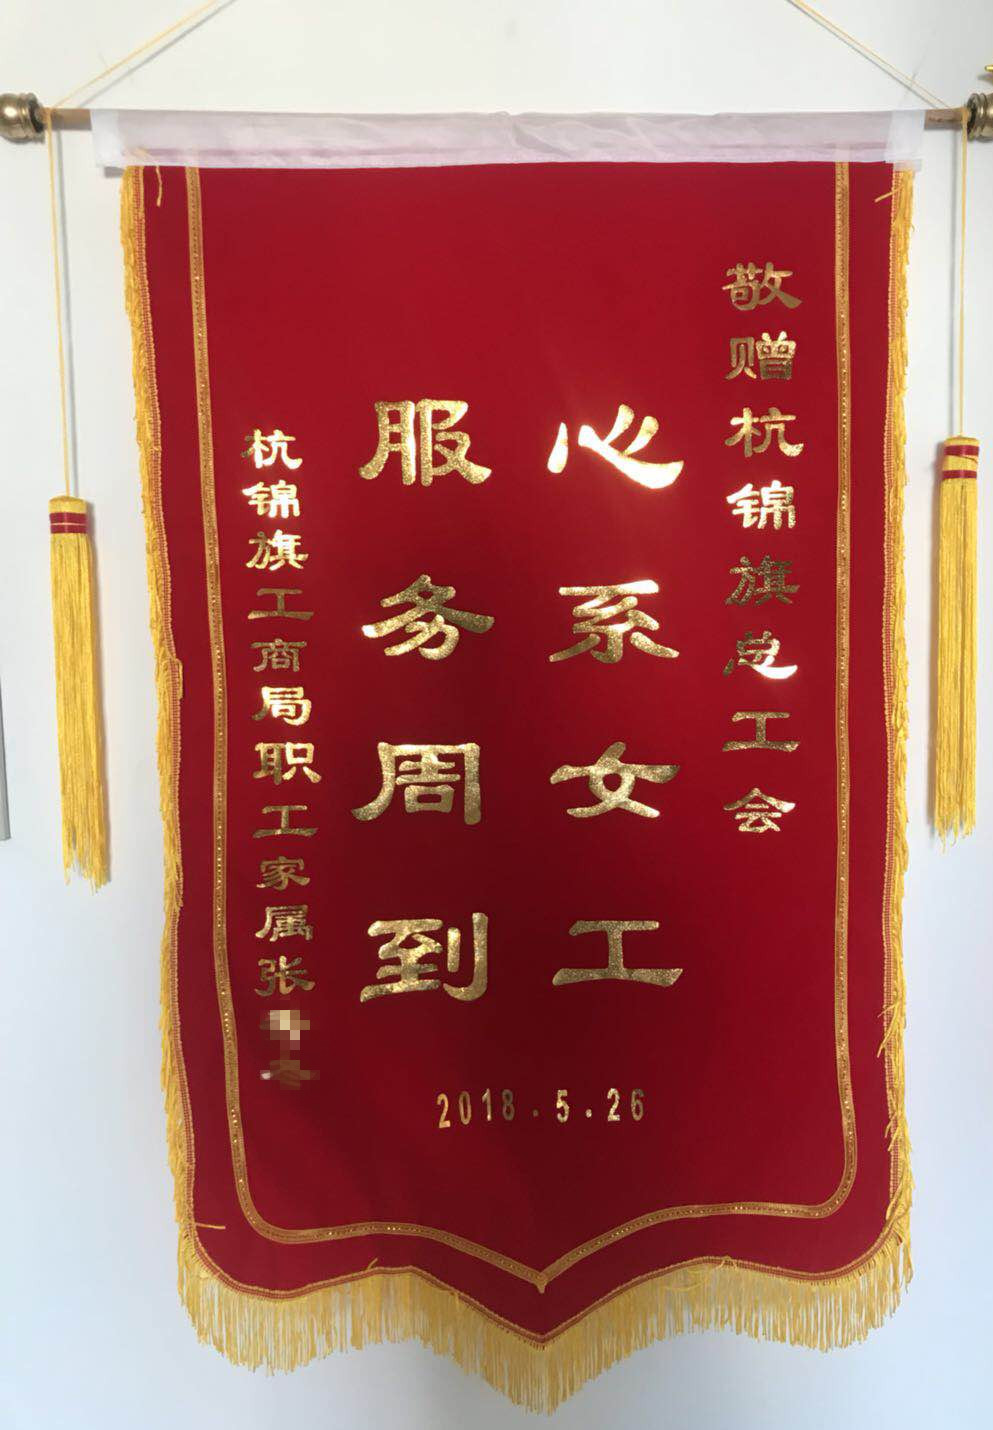 敬赠杭锦旗总工会
心系女工
服务周到
杭锦旗工商局职工家属张
2018.5.26